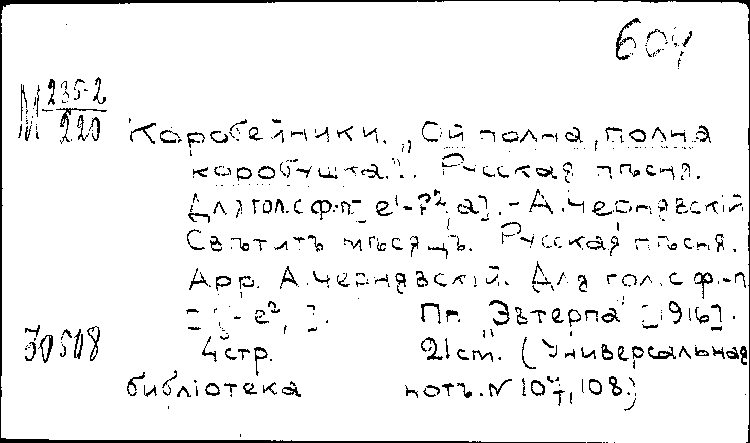 604
М 235-2
220
Коробейники. „Ой полна, полна
коробушка.". Русская пѣсня.
Для гол. с ф.-п. [e¹-f²,a]. - А. Чернявскій
Свѣтитъ мѣсяцъ. Русская пѣсня.
Арр. А. Чернявскій. Для гол. с ф.-п
e², ]. Пг. „Эвтерпа" [1916].
30508 4 стр. 21 cm. (Универсальная
библіотека нотъ. № 108.)